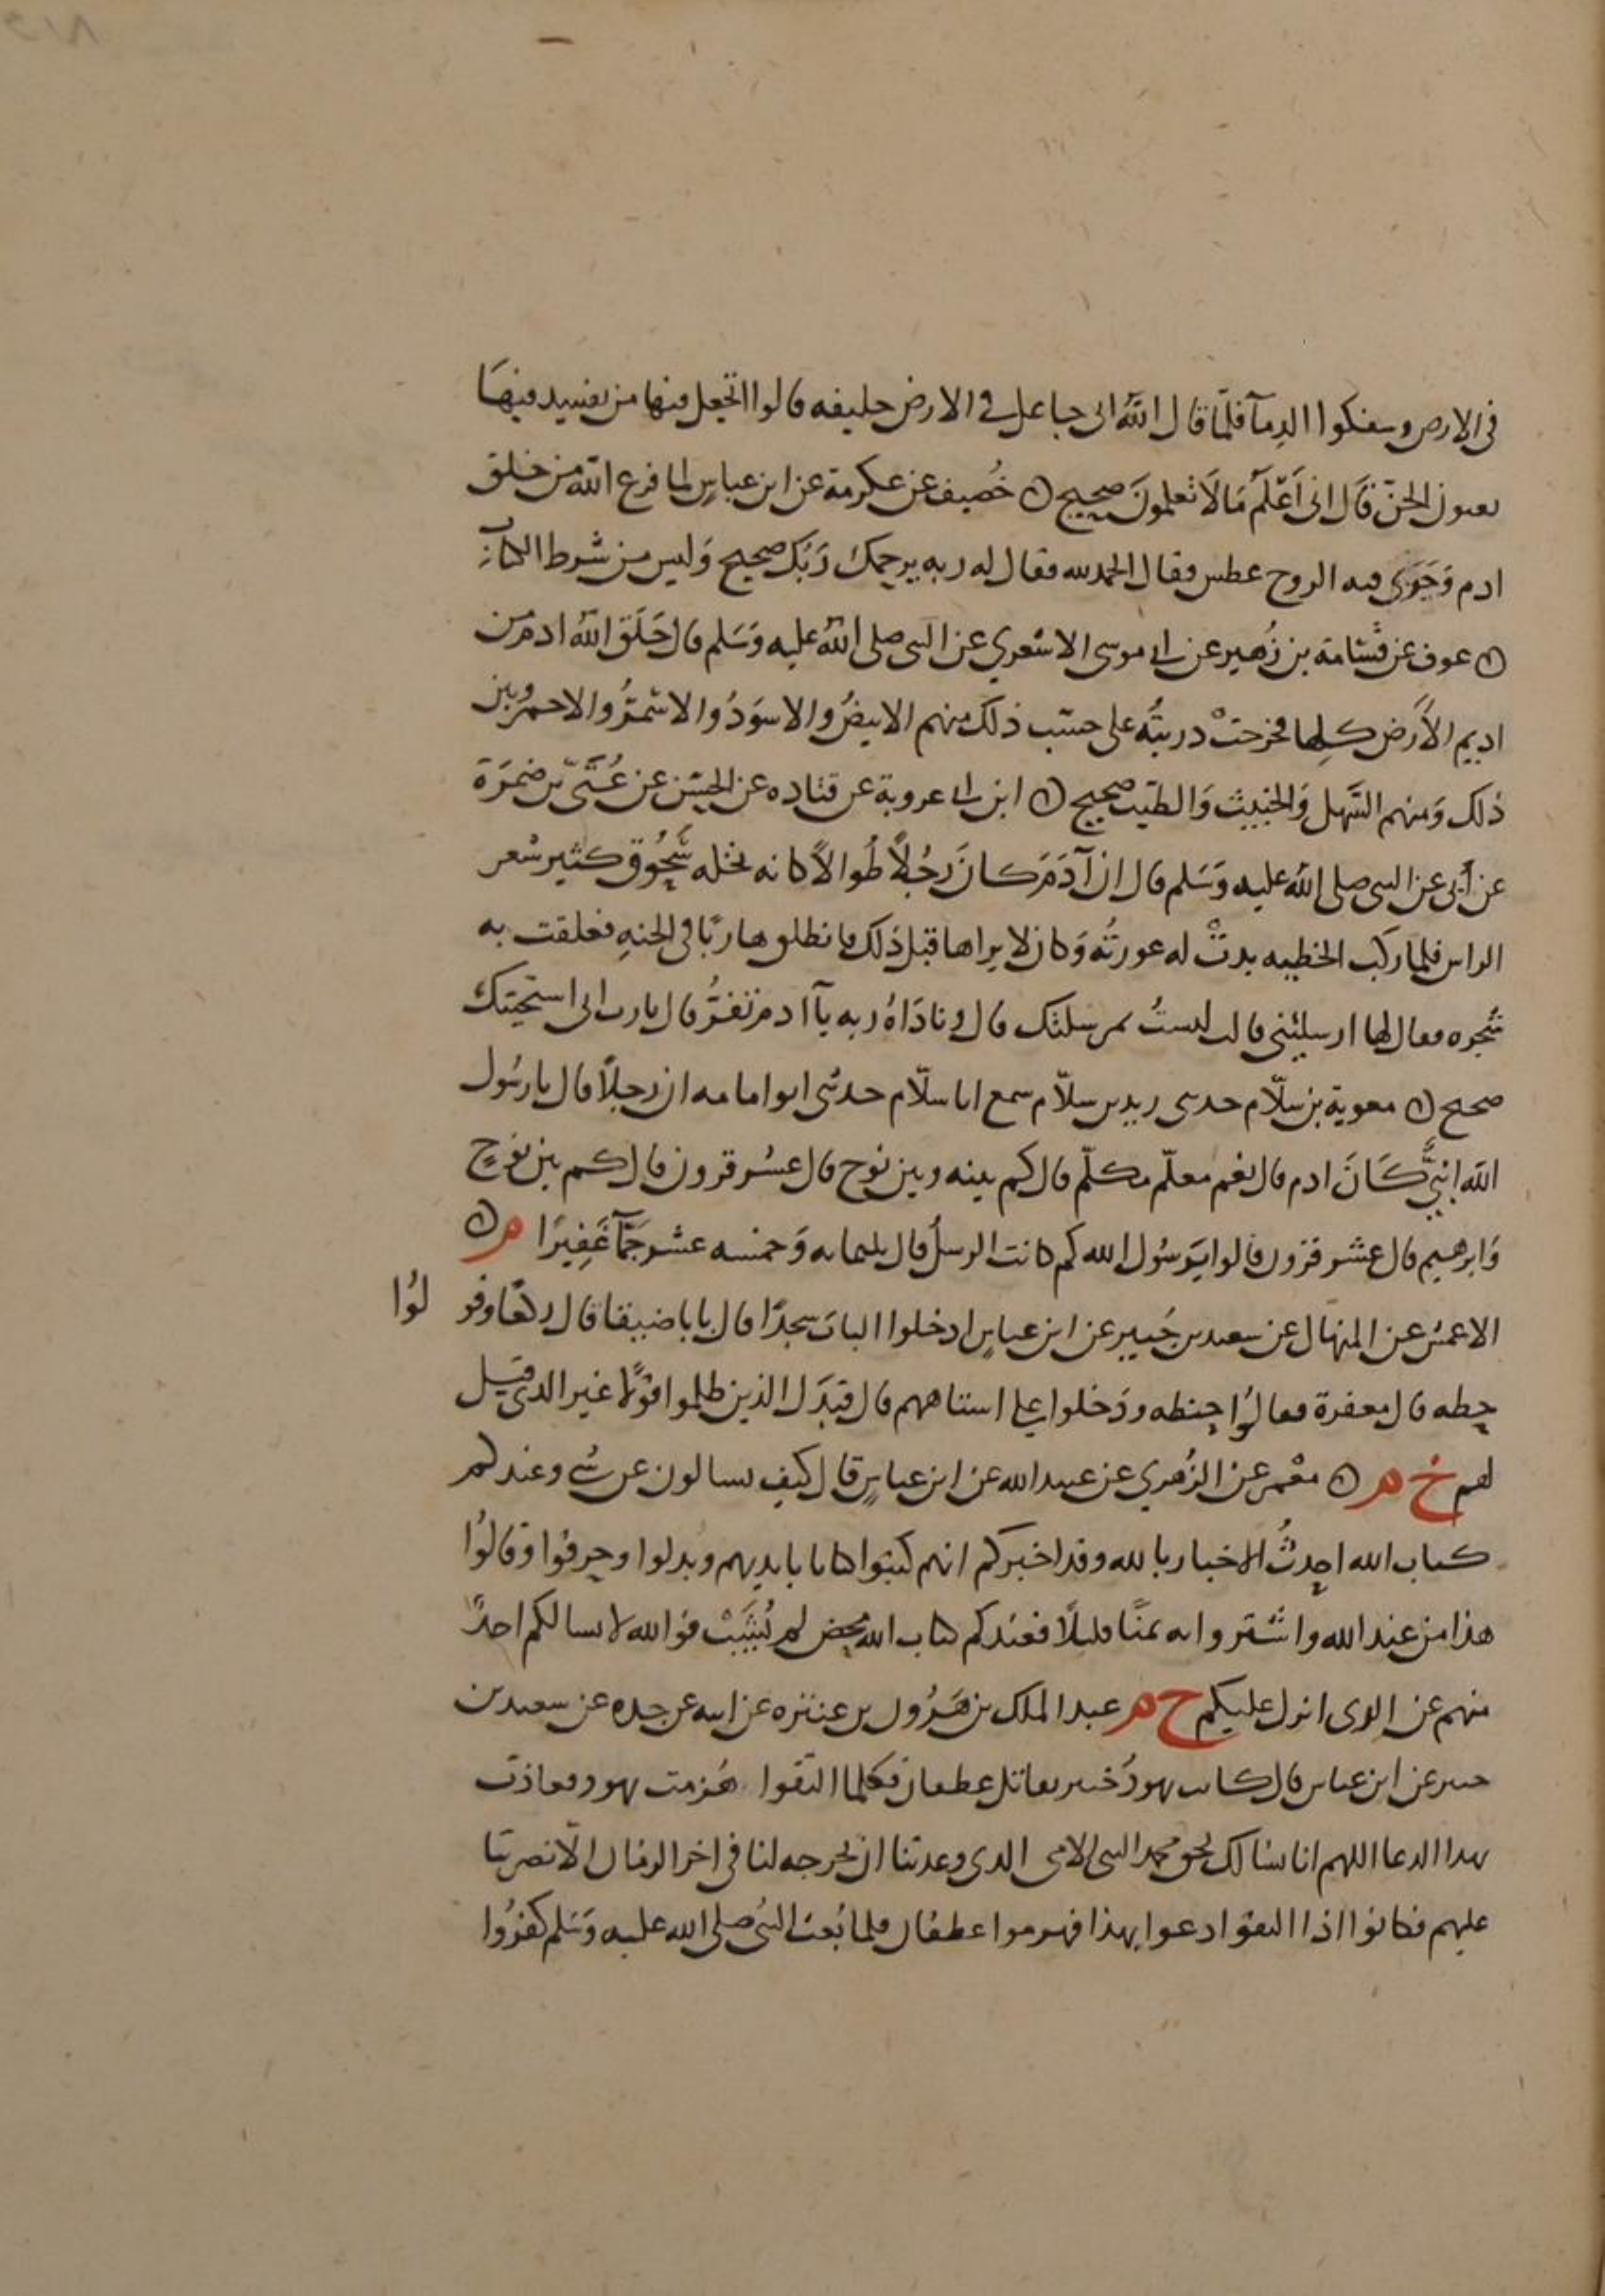 في الارض وسفكوا الدمآ فلمّا قال اللّه اني جاعل في الارض خليفه قالوا اتجعل فيها من يفسِد فيهَا
يعنون الجنّ قَال اني اَعْلَمُ مَا لَا تَعلمونَ صحيح ه خُصيف عن عكرمة عن ابن عباسٍ لما فرغ اللّه من خلق
ادم وَجَرَى فيه الروح عطس فقال الحمد لله فقال له ربه يرحمك رَبّك صحيح وَليس من شرط الكتاب
ه عوف عن قسَامة بن زُهير عن ابي موسى الاشعري عن النبي صلى اللّه عليه وَسَلم قال خَلَق اللّه ادم من
اديم الأرض كلها فخرجتْ ذريتُه على حسَب ذلك منهم الابيضُ والاسوَدُ والاسْمَرُ والاحمرُ وبين
ذلك وَمنهم السَّهل وَالخبيث وَالطيّب صحيح ه ابن ابي عروبة عن قتاده عن الحسَن عن عُتَىّ بن ضمرَة
عن أبي عن النبي صلى اللّه عليه وَسَلم قال ان آدَمَ كانَ رَجُلاً طُوالاً كانه نخله سَحُوق كثير شعر
الراس فلما ركب الخطيه بدتْ له عورتُه وَكان لا يراها قبل ذلك فانطلق هاربًا في الجنهِ فعلقت به
شجره فقال لها ارسليني قالت لستُ بمرسلتك قال ونادَاهُ ربه يآ ادم تفرُّ قال يا رب اني استحيتك
صحيح ه معوية بن سلّام حدثني زيد بن سلّام سمع ابا سلّام حدثني ابو امامه ان رجلاً قال يا رسُول
الله انبيٌّ كَانَ ادم قال نعم معلّم مكلّم قال كم بينه وبين نوح قال عشر قرون قال كم بين نوحٍ
وَابرهيم قال عشر قرون قالوا يَرسُول الله كم كانت الرسلُ قال ثلثمايه وَخمسه عشر جَمّاً غَفِيرًا م ه
الاعمش عن المنهال عن سعيد بن جُبير عن ابن عباسٍ ادخلوا البابَ سجدًا قال بابا ضيقا قال ركعًا وقولُوا
حِطه قال مغفرة فقالُوا حِنطه ودَخلوا على استاههم قال فبَدّل الذين ظلموا قوْلاً غير الذي قيل
لهم خ م ه معْمر عن الزُهري عن عبيد الله عن ابن عباسٍ قال كيف تسالون عن شى وعندكم
كتاب الله احدثُ الاخبار بالله وقد اخبركم انهم كتبوا كتابا بايديهم وبدلوا وحرفوا وقالُوا
هذا من عند الله واشتروا به ثمنًا قليلاً فعندكم كتاب الله محض لم يُشَبْ فوالله لا يسالكم احدٌ
منهم عن الذي انزل عليكم خ م عبد الملك بن هَرُون بن عنتره عن ابيه عن جده عن سعيد بن
جبير عن ابن عباس قال كانت يهودُ خيبر تقاتل غطفان فكلما التقوا هُزمت يهود فعاذت
بهذا الدعا اللهم انا نسالك بحق محمد النبي الامي الذي وعدتنا ان تخرجه لنا في اخر الزمان الّا نصرتنا
عليهم فكانوا اذا التقوا دعوا بهذا فهزموا غطفان فلما بُعث النبي صلى الله عليه وَسَلم كفرُوا